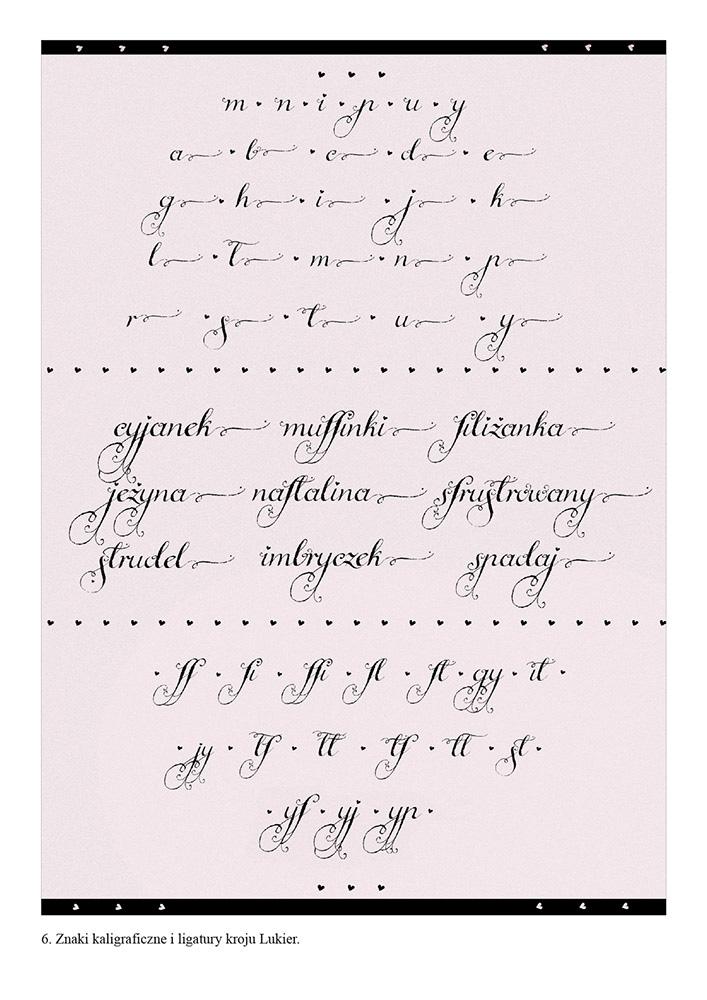 m n i p u y
a b c d e
g h i j k
l ł m n p
r s t u y
cyjanek muffinki filiżanka
jeżyna naftalina sfrustrowany
strudel imbryczek spadaj
ff fi ffi fl ft gy it
jy tf tt łf łł st
yf yj yp
6. Znaki kaligraficzne i ligatury kroju Lukier.